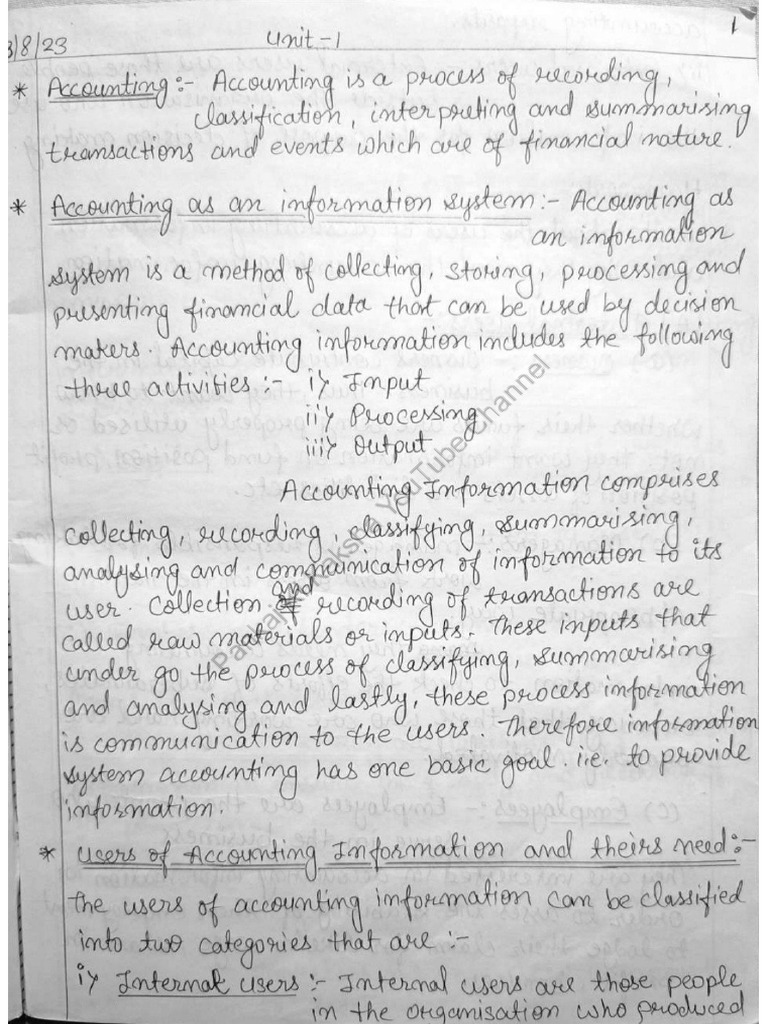 1
3/8/23 Unit-1
* Accounting :- Accounting is a process of recording,
classification, interpreting and summarising
transactions and events which are of financial nature.
* Accounting as an information system :- Accounting as
an information
system is a method of collecting, storing, processing and
presenting financial data that can be used by decision
makers. Accounting information includes the following
three activities :- i) Input
ii) Processing
iii) Output
Accounting Information comprises
collecting, recording, classifying, summarising,
analysing and communication of information to its
user. Collection and recording of transactions are
called raw materials or inputs. These inputs that
under go the process of classifying, summarising
and analysing and lastly, these process information
is communication to the users. Therefore information
system accounting has one basic goal. i.e. to provide
information.
* Users of Accounting Information and theirs need :-
The users of accounting information can be classified
into two categories that are :-
i) Internal users :- Internal users are those people
in the organisation who produced
YouTube Channel